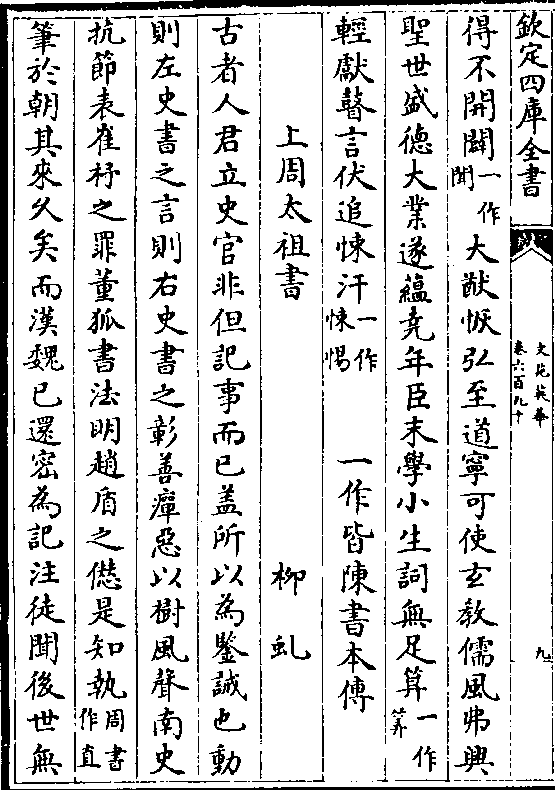 欽定四庫全書
文苑英華
卷六百九十
九
得不開闢一作聞大猷恢弘至道寧可使玄教儒風弗興
聖世盛德大業遂蘊堯年臣末學小生詞無足算一作筭
輕獻瞽言伏追悚汗一作悚惕 一作皆陳書本傳
上周太祖書 柳虬
古者人君立史官非但記事而已盖所以為鑒誡也動
則左史書之言則右史書之彰善癉惡以樹風聲南史
抗節表崔杼之罪董狐書法明趙盾之愆是知執周書作直
筆於朝其來久矣而漢魏已還密為記注徒聞後世無